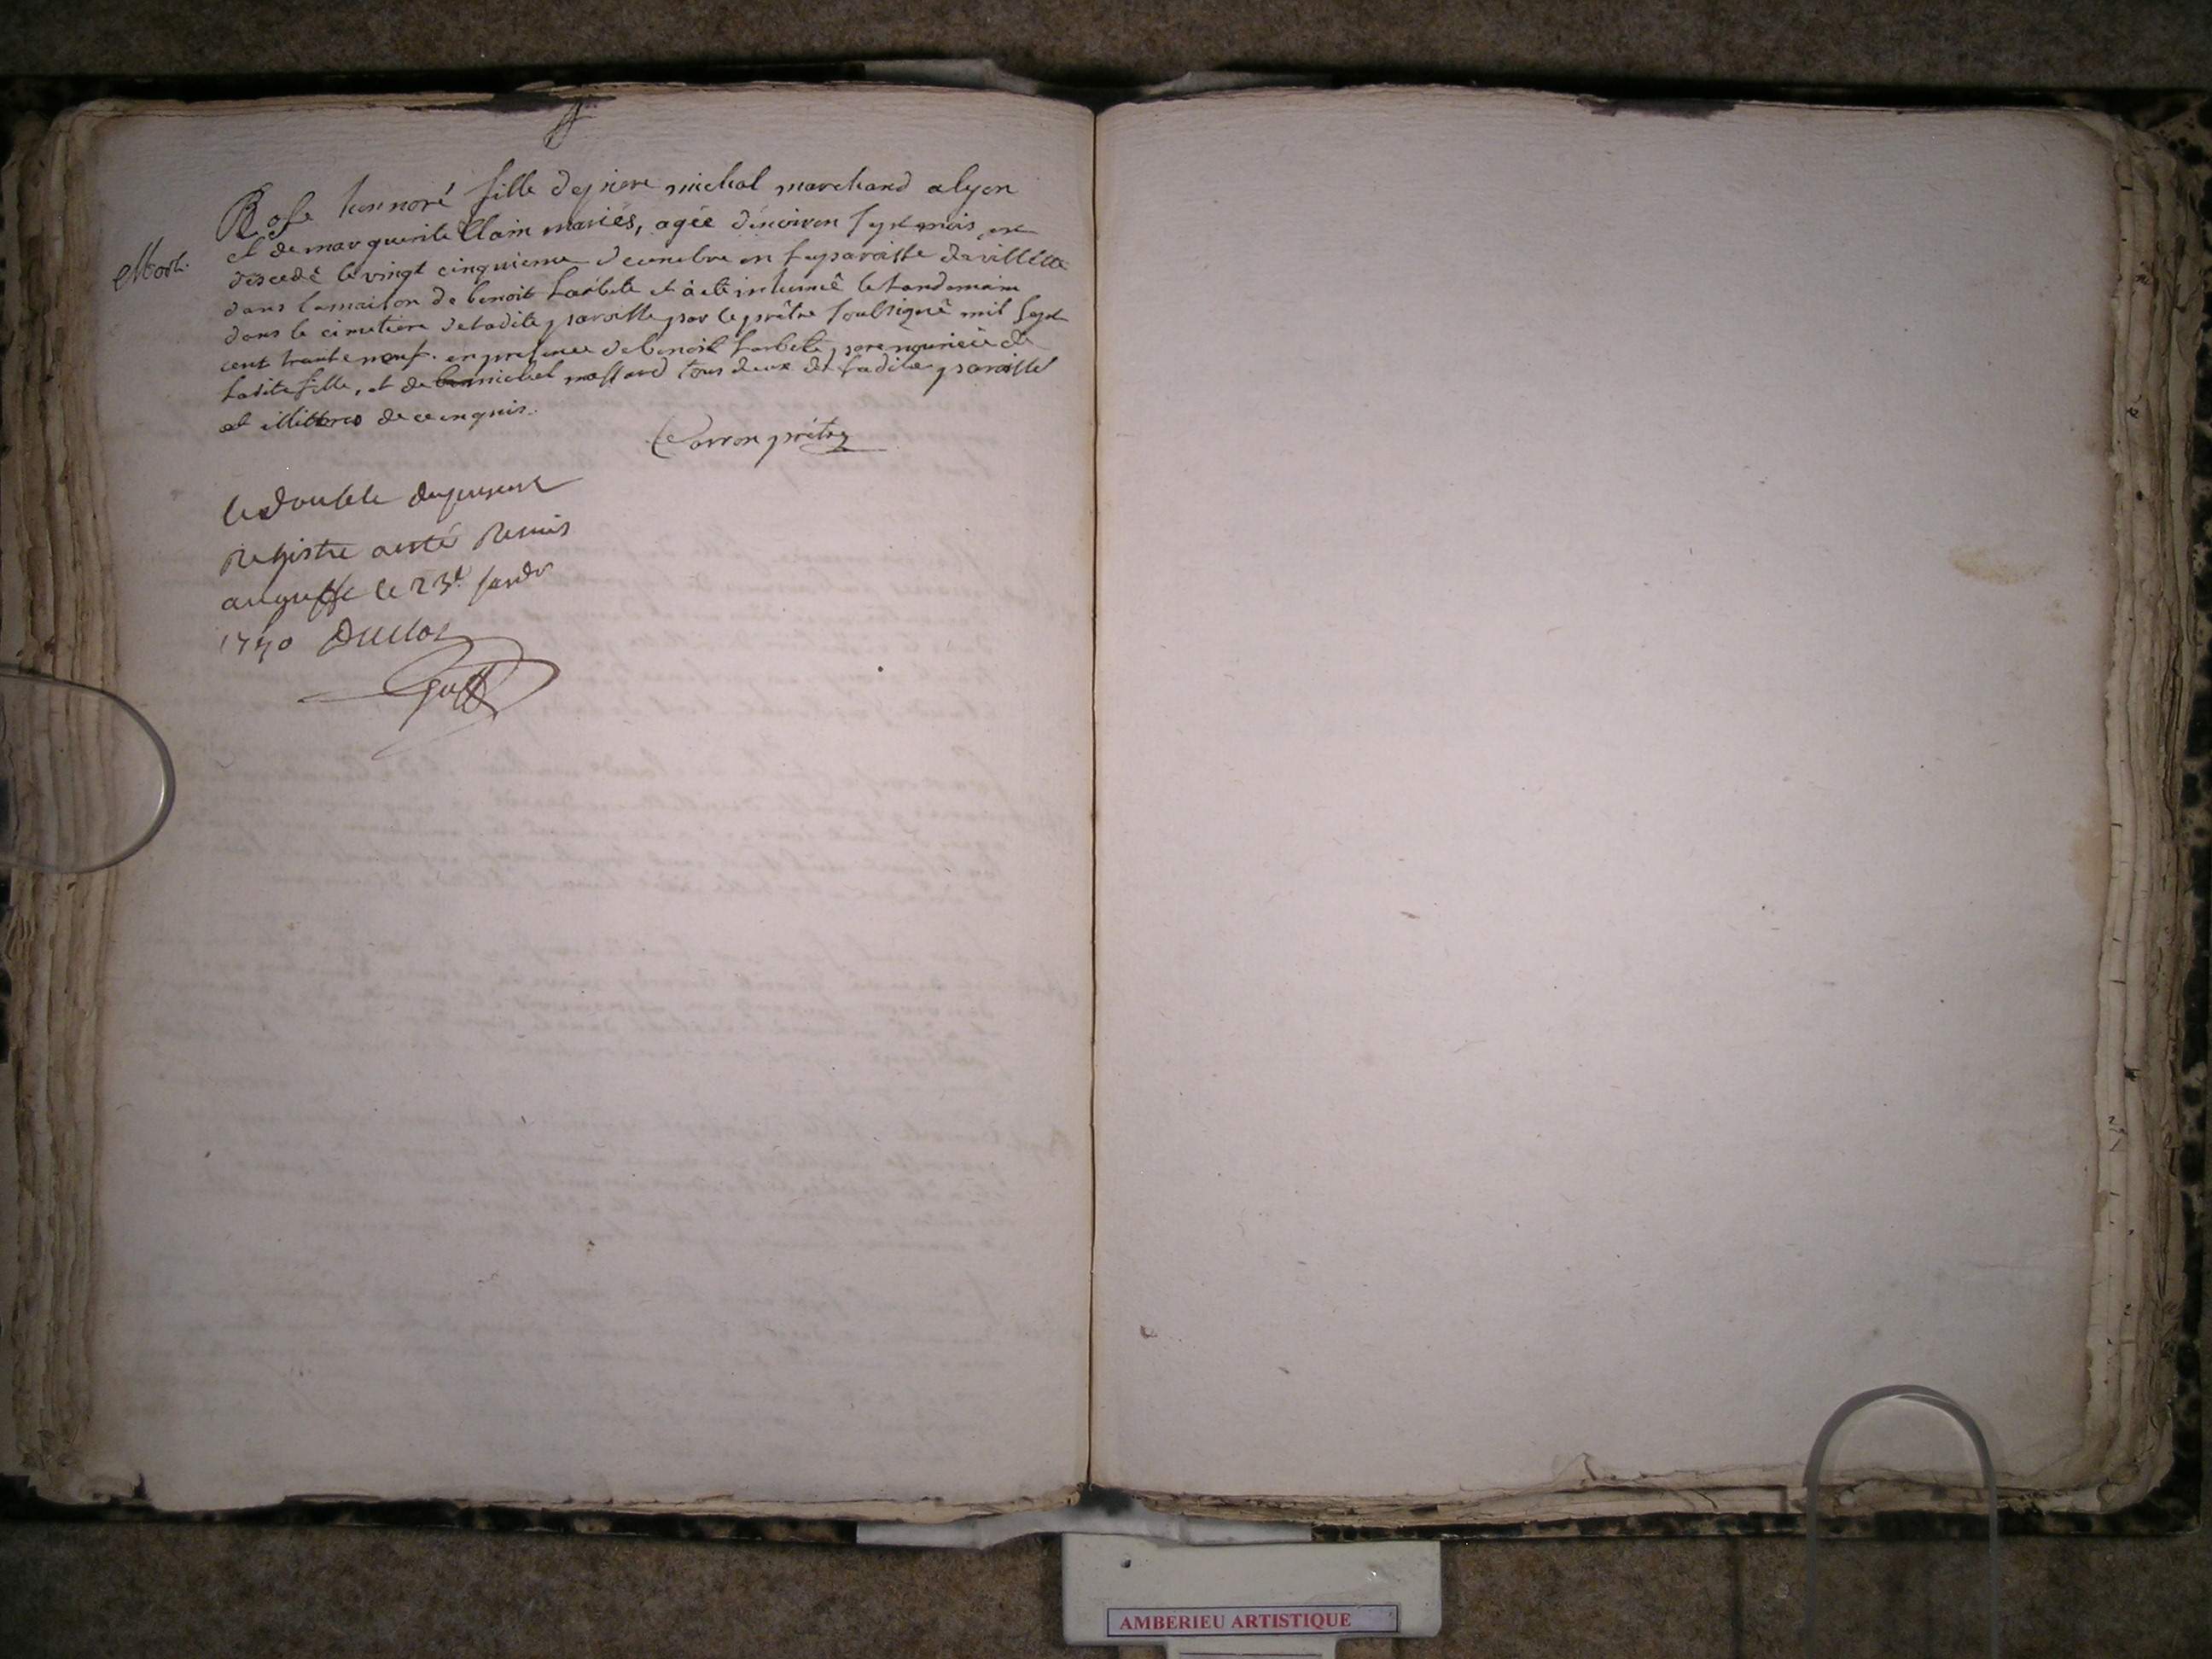 Mort.
Rose honnoré fille de piere michal marchand a lyon
et de marguerite Clain mariés, agée d'environ sept mois est
décedé le vingt cinquieme decembre en la paroisse de villette
dans la maison de benoit barbete et à eté inhumé le landemain
dans le cimetiere de ladite paroisse par le prêtre soussigné mil sept
cent trante neuf. en presence de benoit barbete pere nouricié de
ladite fille, et de michel massard tous deux de ladite paroisse
et illittres de ce enquis.
Carron prêtre
le double du present
Registre a esté Remis
au greffe le 23e janvier
1740 Duclos
greff
AMBERIEU ARTISTIQUE